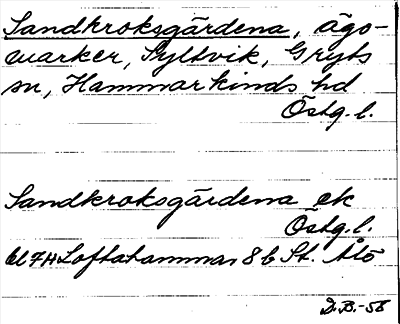 Sandkroksgärdena, ägo-
marker, Syltvik, Gryts
sn, Hammarkinds hd
Östg. l.
Sandkroksgärdena ek
Östg. l.
Bl 7H Loftahammar 8b St. Ålö
D. B. -58